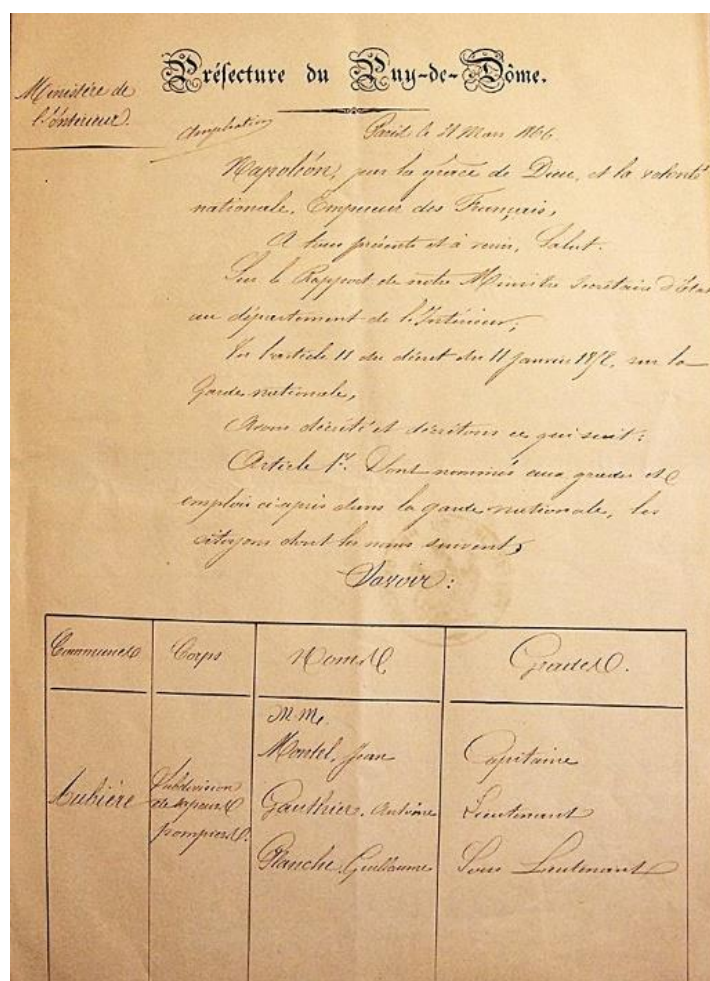 Préfecture du Puy-de-Dôme.
Ministère de
l'Intérieur.
Ampliation
Paris le 21 Mars 1866.
Napoléon, par la grâce de Dieu, et la volonté
nationale, Empereur des Français,
A tous présents et à venir, Salut.
Sur le Rapport de notre Ministre Secrétaire d'État
au département de l'Intérieur,
Vu l'article 11 du décret du 11 Janvier 1852, sur la
Garde nationale,
Avons décrété et décrétons ce qui suit:
Article 1er. Sont nommés aux grades et
emplois ci-après dans la garde nationale, les
citoyens dont les noms suivent,
Savoir:
Communes Corps Noms Grades.
M.M.
Montel, Jean Capitaine
Aubière Subdivision de sapeurs pompiers. Gauthier, Antoine Lieutenant
Planche, Guillaume Sous Lieutenant